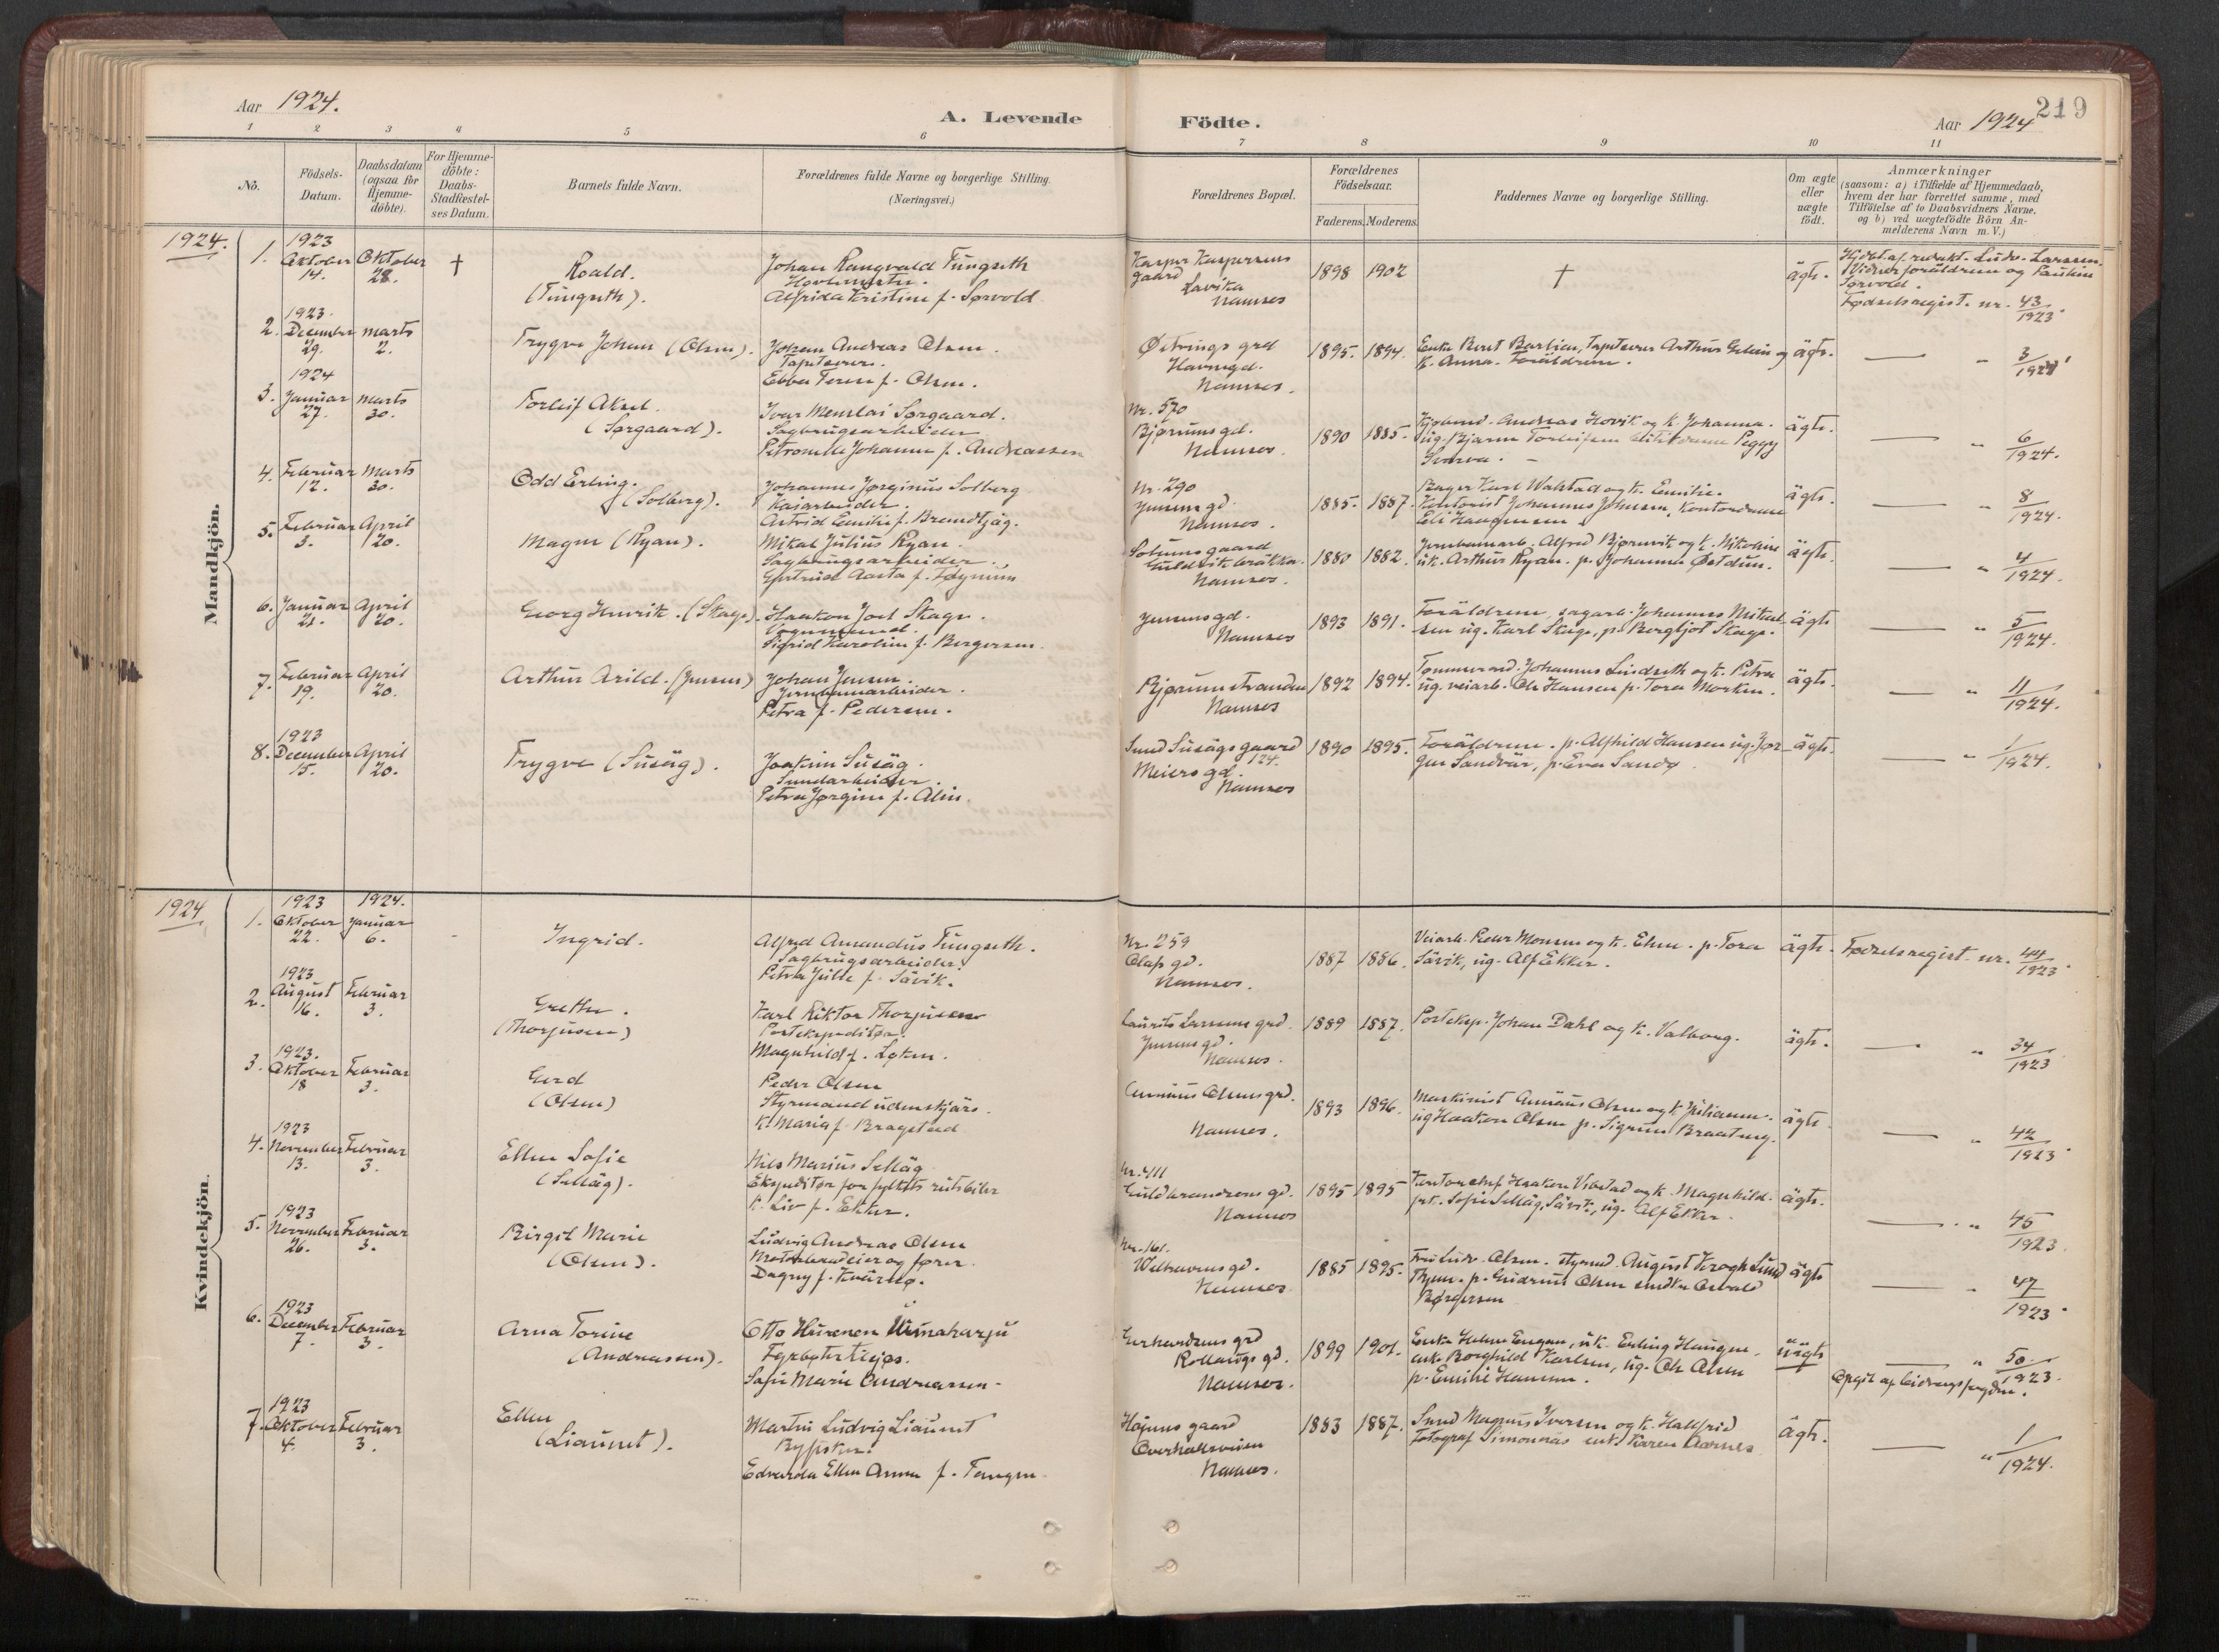 Aar 1924.
A. Levende
Födte.
Aar 1924
219
1 2 3 4 5 6 7 8 9 10 11
No.
Födsels-
Datum.
Daabsdatum
(ogsaa for
Hjemme-
döbte).
For Hjemme-
döbte:
Daabs-
Stadfæstel-
ses Datum.
Barnets fulde Navn.
Forældrenes fulde Navne og borgerlige Stilling.
(Næringsvei.)
Forældrenes Bopæl.
Forældrenes
Födselsaar.
Faderens. Moderens.
Faddernes Navne og borgerlige Stilling.
Om ægte
eller
uægte
født.
Anmærkninger
(saasom: a) i Tilfælde af Hjemmedaab,
hvem der har forrettet samme, med
Tilföielse af to Daabsvidners Navne,
og b) ved uægtefödte Börn An-
melderens Navn m. V.)
Mandkjön.
1924.
1.
1923
Oktober
14.
Oktober
28.
†
Roald.
(Tüngseth).
Johan Rangvald Tüngseth
Alfrida Kristine f. Sørvold
Kasper Kaspersens
gaard
Lavika
Namsos
1898
1902
†
ägte.
Hjdbt. af redakt. Ludv. Larssen.
Vidner foräldrene og Pauline
Sørvold.
Fødselsregist. nr. 43/1923.
2.
1923.
December
29.
Marts
2.
Trygve Johan (Olsen).
Johan Andreas Olsen.
Tapetserer.
Ebba Terese f. Olsen.
Østrings grd
Havnegd.
Namsos.
1895.
1894.
Enke Berit Barlien, Tapetserer Arthur Glein og
k. Anna. Foräldrene.
ägte.
" 3/1924
3.
1924
Januar
27.
Marts
30.
Torleif Aksel.
(Sørgaard).
Ivar Menslai Sørgaard.
Sagbrugsarbeider
Petronelle Johanne f. Andreassen
Nr. 570
Bjørumsgd.
Namsos.
1890
1885.
Kjøbmd. Andreas Hovik og k. Johanna.
üg. Bjarne Torleifsen Peggy
ägte.
" 6/1924.
4.
Februar
12.
Marts
30.
Odd Erling.
(Solberg).
Johannes Jørginus Solberg
Kaiarbeider.
Astrid Emilie f. Brendtjäg.
Nr. 290
Jensens gd.
Namsos.
1885.
1887.
Bager Karl Walstad og k. Emilie.
Kontorist Johannes Johnsen, Kontordame
Eli Haugensen
ägte.
" 8/1924.
5.
Februar
3.
April
20.
Magne (Ryan).
Mikal Julius Ryan.
Sagbrugsarbeider.
Gjertrud Aasta f. Tøymüm
Solums gaard
Namsos.
1880
1882.
Jernbanearb. Alfred Bjørnvik og k. Nikoline
ük. Arthur Ryan. p. Johanna Østdun.
ägte.
" 4/1924.
6.
Januar
21.
April
20.
Georg Henrik. (Skage).
Haakon Joel Skage.
Vognmand.
Sigrid Karoline f. Bergersen.
Jensens gd.
Namsos
1893
1891.
Foräldrene, sagarb. Johannes Mikal-
sen üg. Karl Skage, p. Bergljot Skage.
ägte
" 5/1924.
7.
Februar
19.
April
20.
Arthur Arild. (Jensen)
Johan Jensen.
Jernbanearbeider.
Petra f. Pedersen.
Bjørumstranden
Namsos
1892
1894.
Tømmermd. Johannes Lindseth og k. Petra
üg. veiarb. Ole Hansen p. Tora Morken.
ägte.
" 11/1924.
8.
1923
December
15.
April
20.
Trygve (Süsäg).
Joakim Süsäg.
Sundarbeider.
Petra Jørgine f. Alin.
Sund Süsägs gaard
124.
Meiers gd.
Namsos
1890
1895.
Foräldrene. p. Alfhild Hansen üg. Jør-
gen Sandvär, p. Eva Sandø
ägte.
" 1/1924.
Kvindekjön.
1924
1.
1923
Oktober
22.
1924.
Januar
6.
Ingrid.
Alfred Amandus Tüngseth.
Sagbrugsarbeider.
Petra Julie f. Sävik.
Nr. 259
Olafs gd.
Namsos.
1887
1886.
Veiarb. Peder Monsen og k. Elen. p. Tora
Sävik, üg. Alf Ekker.
ägte.
Fødselsregist. nr. 44/1923.
2.
1923
August
16.
Februar
3.
Grethe.
(Thorjusen)
Karl Viktor Thorjusen
Postekspeditør.
Magnhild f. Løken.
Laurits Larsens grd.
Jensens gd.
Namsos.
1889
1887.
Posteksp. Johan Dahl og k. Valborg.
ägte.
" 34/1923
3.
1923.
Oktober
18
Februar
3.
Gerd
(Olsen)
Peder Olsen
Styrmand udenskjärs.
k. Maria f. Bragstad
Olsens grd.
Namsos.
1893
1896.
Maskinist Olsen og k. Julianne.
üg Haakon Olsen p. Sigrun Braateng.
ägte
" 42/1923.
4.
1923
November
13.
Februar
3.
Ellen Sofie
(Selläg).
Nils Marius Selläg
Ekspeditør for fylkets rutebiler
k. Liv f. Ekker.
Nr. 411
Guldbrandsens gd.
Namsos
1895
1895
Kontorchef Haakon Vibstad og k. Magnhild.
frk. Sofie Selläg, Sävik, üg. Alf Ekker.
ägte.
" 45/1923
5.
1923
November
26.
Februar
3.
Birgit Marie
(Olsen).
Ludvig Andreas Olsen
Motorbaadeier og fører.
Dagny f. Kvärnø.
Nr. 161.
Namsos
1885
1895.
Fru Ludv. Olsen. styrmd. August Krogh Lund
Thyne. p. Gudrun Olsen
Børgersen
ägte
" 47/1923.
6.
1923
December
7.
Februar
3.
Arna Torine
(Andreassen).
Otto Hurenen
Fyrbøter
Sofie Marie Andreassen
Gerhardsens grd
Rollaugs gd.
Namsos.
1899
1901.
Enke Helene Engan, ük. Erling Haugen.
enk. Borghild Karlsen, üg. Ole Olsen
p. Emilie Hansen.
üägte
" 50/1923.
Opgit af bidragsfogden.
7.
1923
Oktober
4.
Februar
3.
Ellen
(Liaunet).
Martin Ludvig Liaunet
Byfisker.
Edvarda Ellen Anna f. Tangen.
Højems gaard
Overhallsveien
Namsos.
1883
1887.
Smed Magnus Iversen og k. Hallfrid
Fotograf Simonnäs enk. Karen Aarnes
ägte.
" 1/1924.